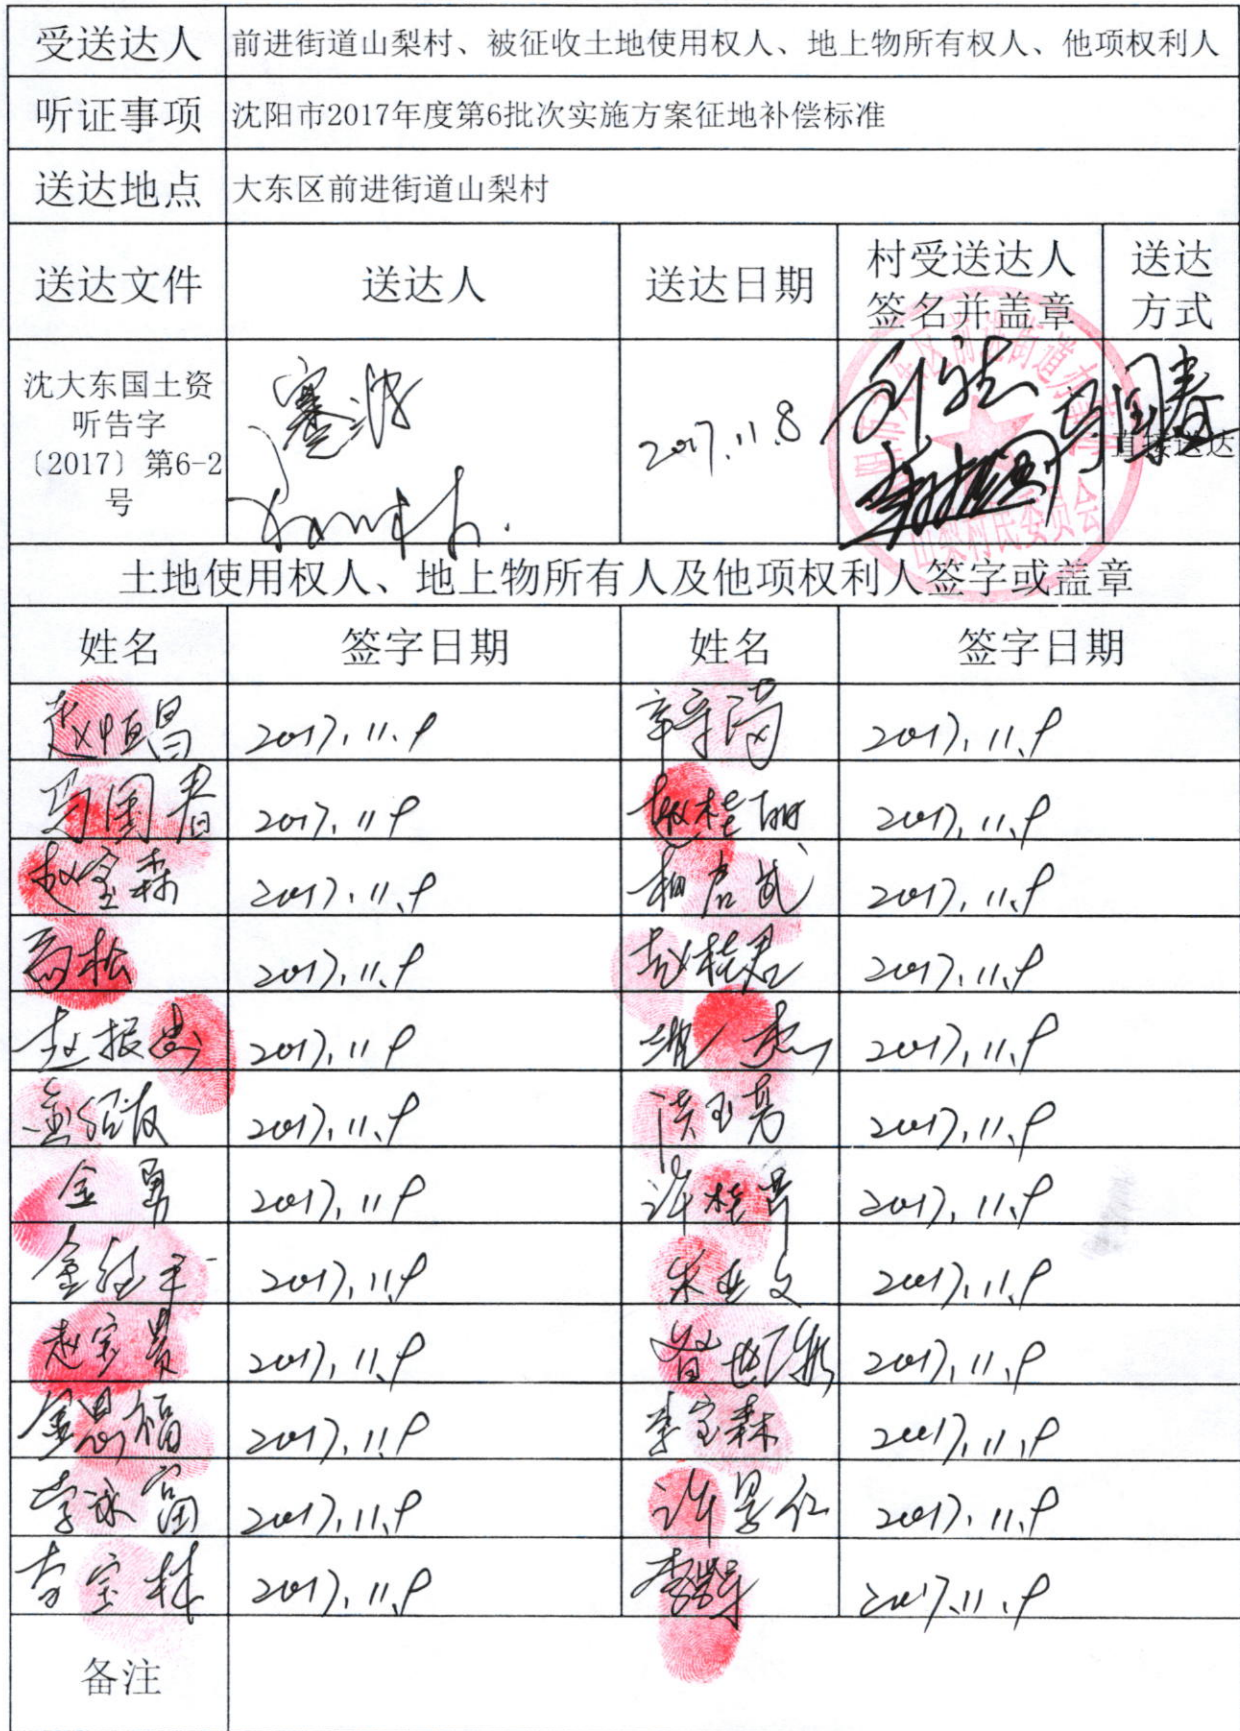 受送达人 前进街道山梨村、被征收土地使用权人、地上物所有权人、他项权利人
听证事项 沈阳市2017年度第6批次实施方案征地补偿标准
送达地点 大东区前进街道山梨村
送达文件 送达人 送达日期 村受送达人 送达
签名并盖章 方式
沈大东国土资
听告字
〔2017〕第6-2
号
2017.11.8
直接送达
山梨村民委员会
土地使用权人、地上物所有人及他项权利人签字或盖章
姓名 签字日期 姓名 签字日期
赵恒昌 2017.11.9 2017.11.9
马国春 2017.11.9 赵桂丽 2017.11.9
赵宝森 2017.11.9 2017.11.9
高松 2017.11.9 赵桂君 2017.11.9
赵振忠 2017.11.9 2017.11.9
2017.11.9 洪玉芳 2017.11.9
金勇 2017.11.9 2017.11.9
2017.11.9 朱世文 2017.11.9
赵宝贵 2017.11.9 2017.11.9
金恩福 2017.11.9 李宝森 2017.11.9
李永富 2017.11.9 许景仁 2017.11.9
李宝林 2017.11.9 2017.11.9
备注